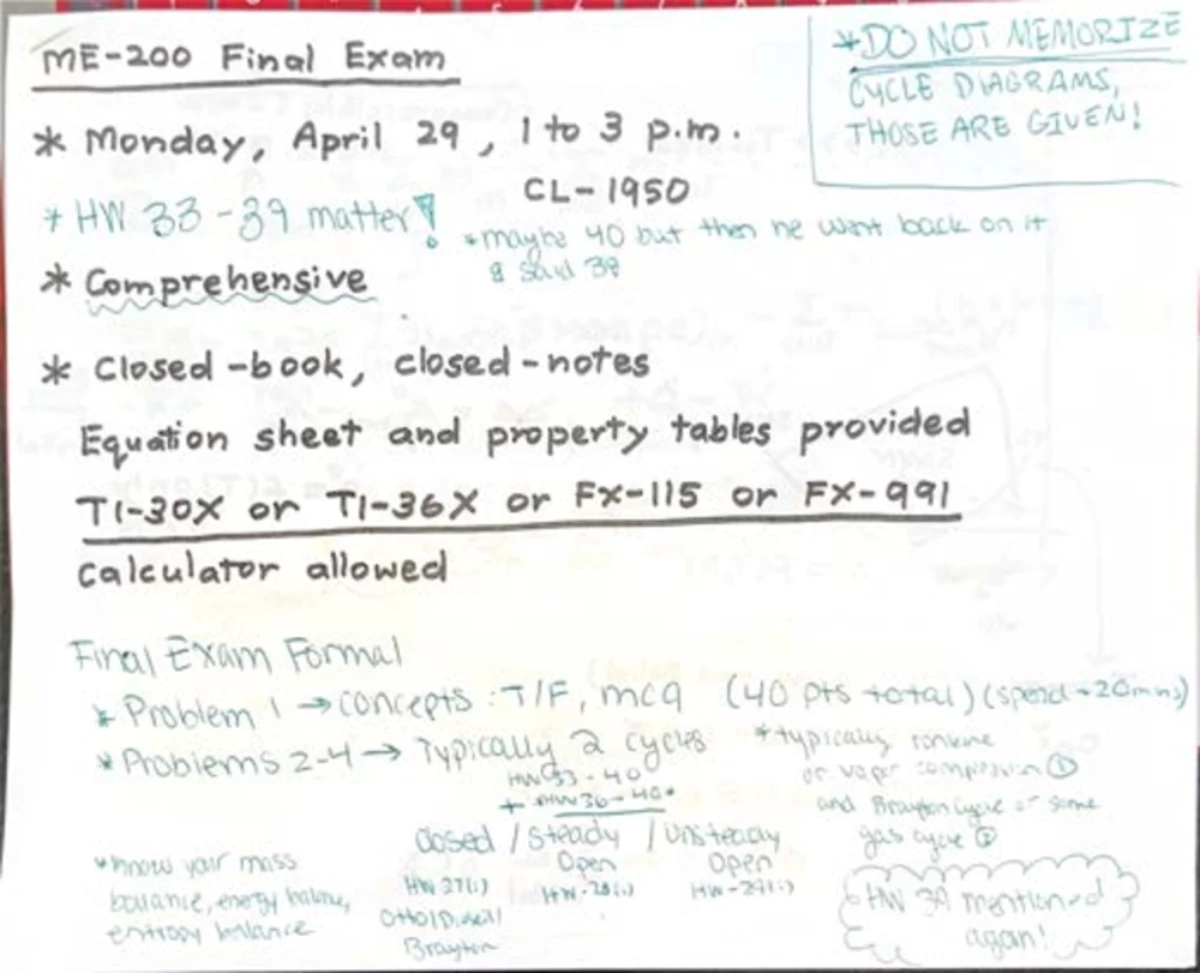 ME-200 Final Exam
*DO NOT MEMORIZE
CYCLE DIAGRAMS,
THOSE ARE GIVEN!
* Monday, April 29, 1 to 3 p.m.
CL-1950
* HW 33-39 matter!
*maybe 40 but then he went back on it
& said 39
* Comprehensive
* Closed-book, closed-notes
Equation sheet and property tables provided
TI-30X or TI-36X or FX-115 or FX-991
calculator allowed
Final Exam Formal
* Problem 1 → concepts: T/F, mcq (40 pts total) (spend ~20mins)
* Problems 2-4 → Typically 2 cycles
*typically rankine
or vapor compression ①
and Brayton cycle or some
gas cycle ②
HW 33-40
+ HW 36-40
Closed / Steady / Unsteady
Open Open
HW 27(i) HW-28(i) HW-29(i)
Otto/Diesel/
Brayton
*know your mass
balance, energy balance,
entropy balance
HW 39 mentioned
again!